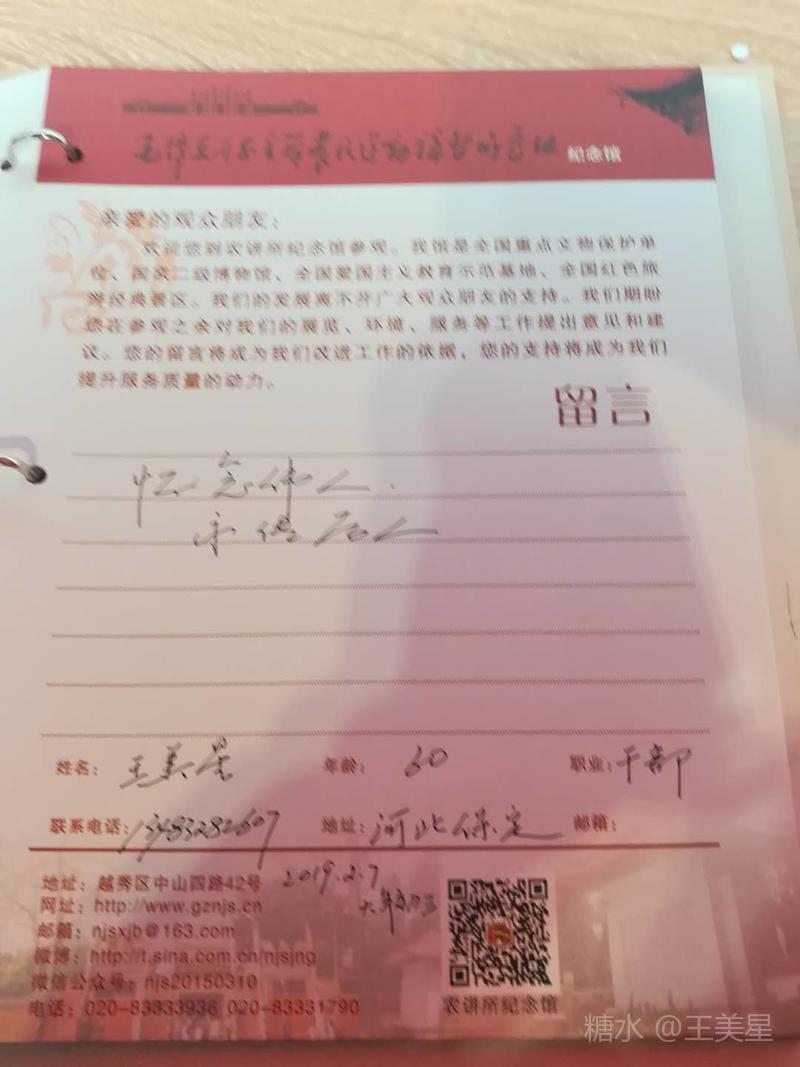 毛泽东同志主办农民运动讲习所旧址 纪念馆
亲爱的观众朋友：
欢迎您到农讲所纪念馆参观。我馆是全国重点文物保护单
位、国家二级博物馆、全国爱国主义教育示范基地、全国红色旅
游经典景区。我们的发展离不开广大观众朋友的支持。我们期盼
您在参观之余对我们的展览、环境、服务等工作提出意见和建
议。您的留言将成为我们改进工作的依据，您的支持将成为我们
提升服务质量的动力。
留言
怀念伟人.
永传后人
姓名：王美星 年龄：60 职业：干部
联系电话：13483282607 地址：河北保定 邮箱：
地址：越秀区中山四路42号 2019.2.7
网址：http://www.gznjs.cn 大年初三
邮箱：njsxjb@163.com
微博：http://t.sina.com.cn/njsjng
微信公众号：njs20150310
电话：020-83333936 020-83331790 农讲所纪念馆
糖水 @王美星